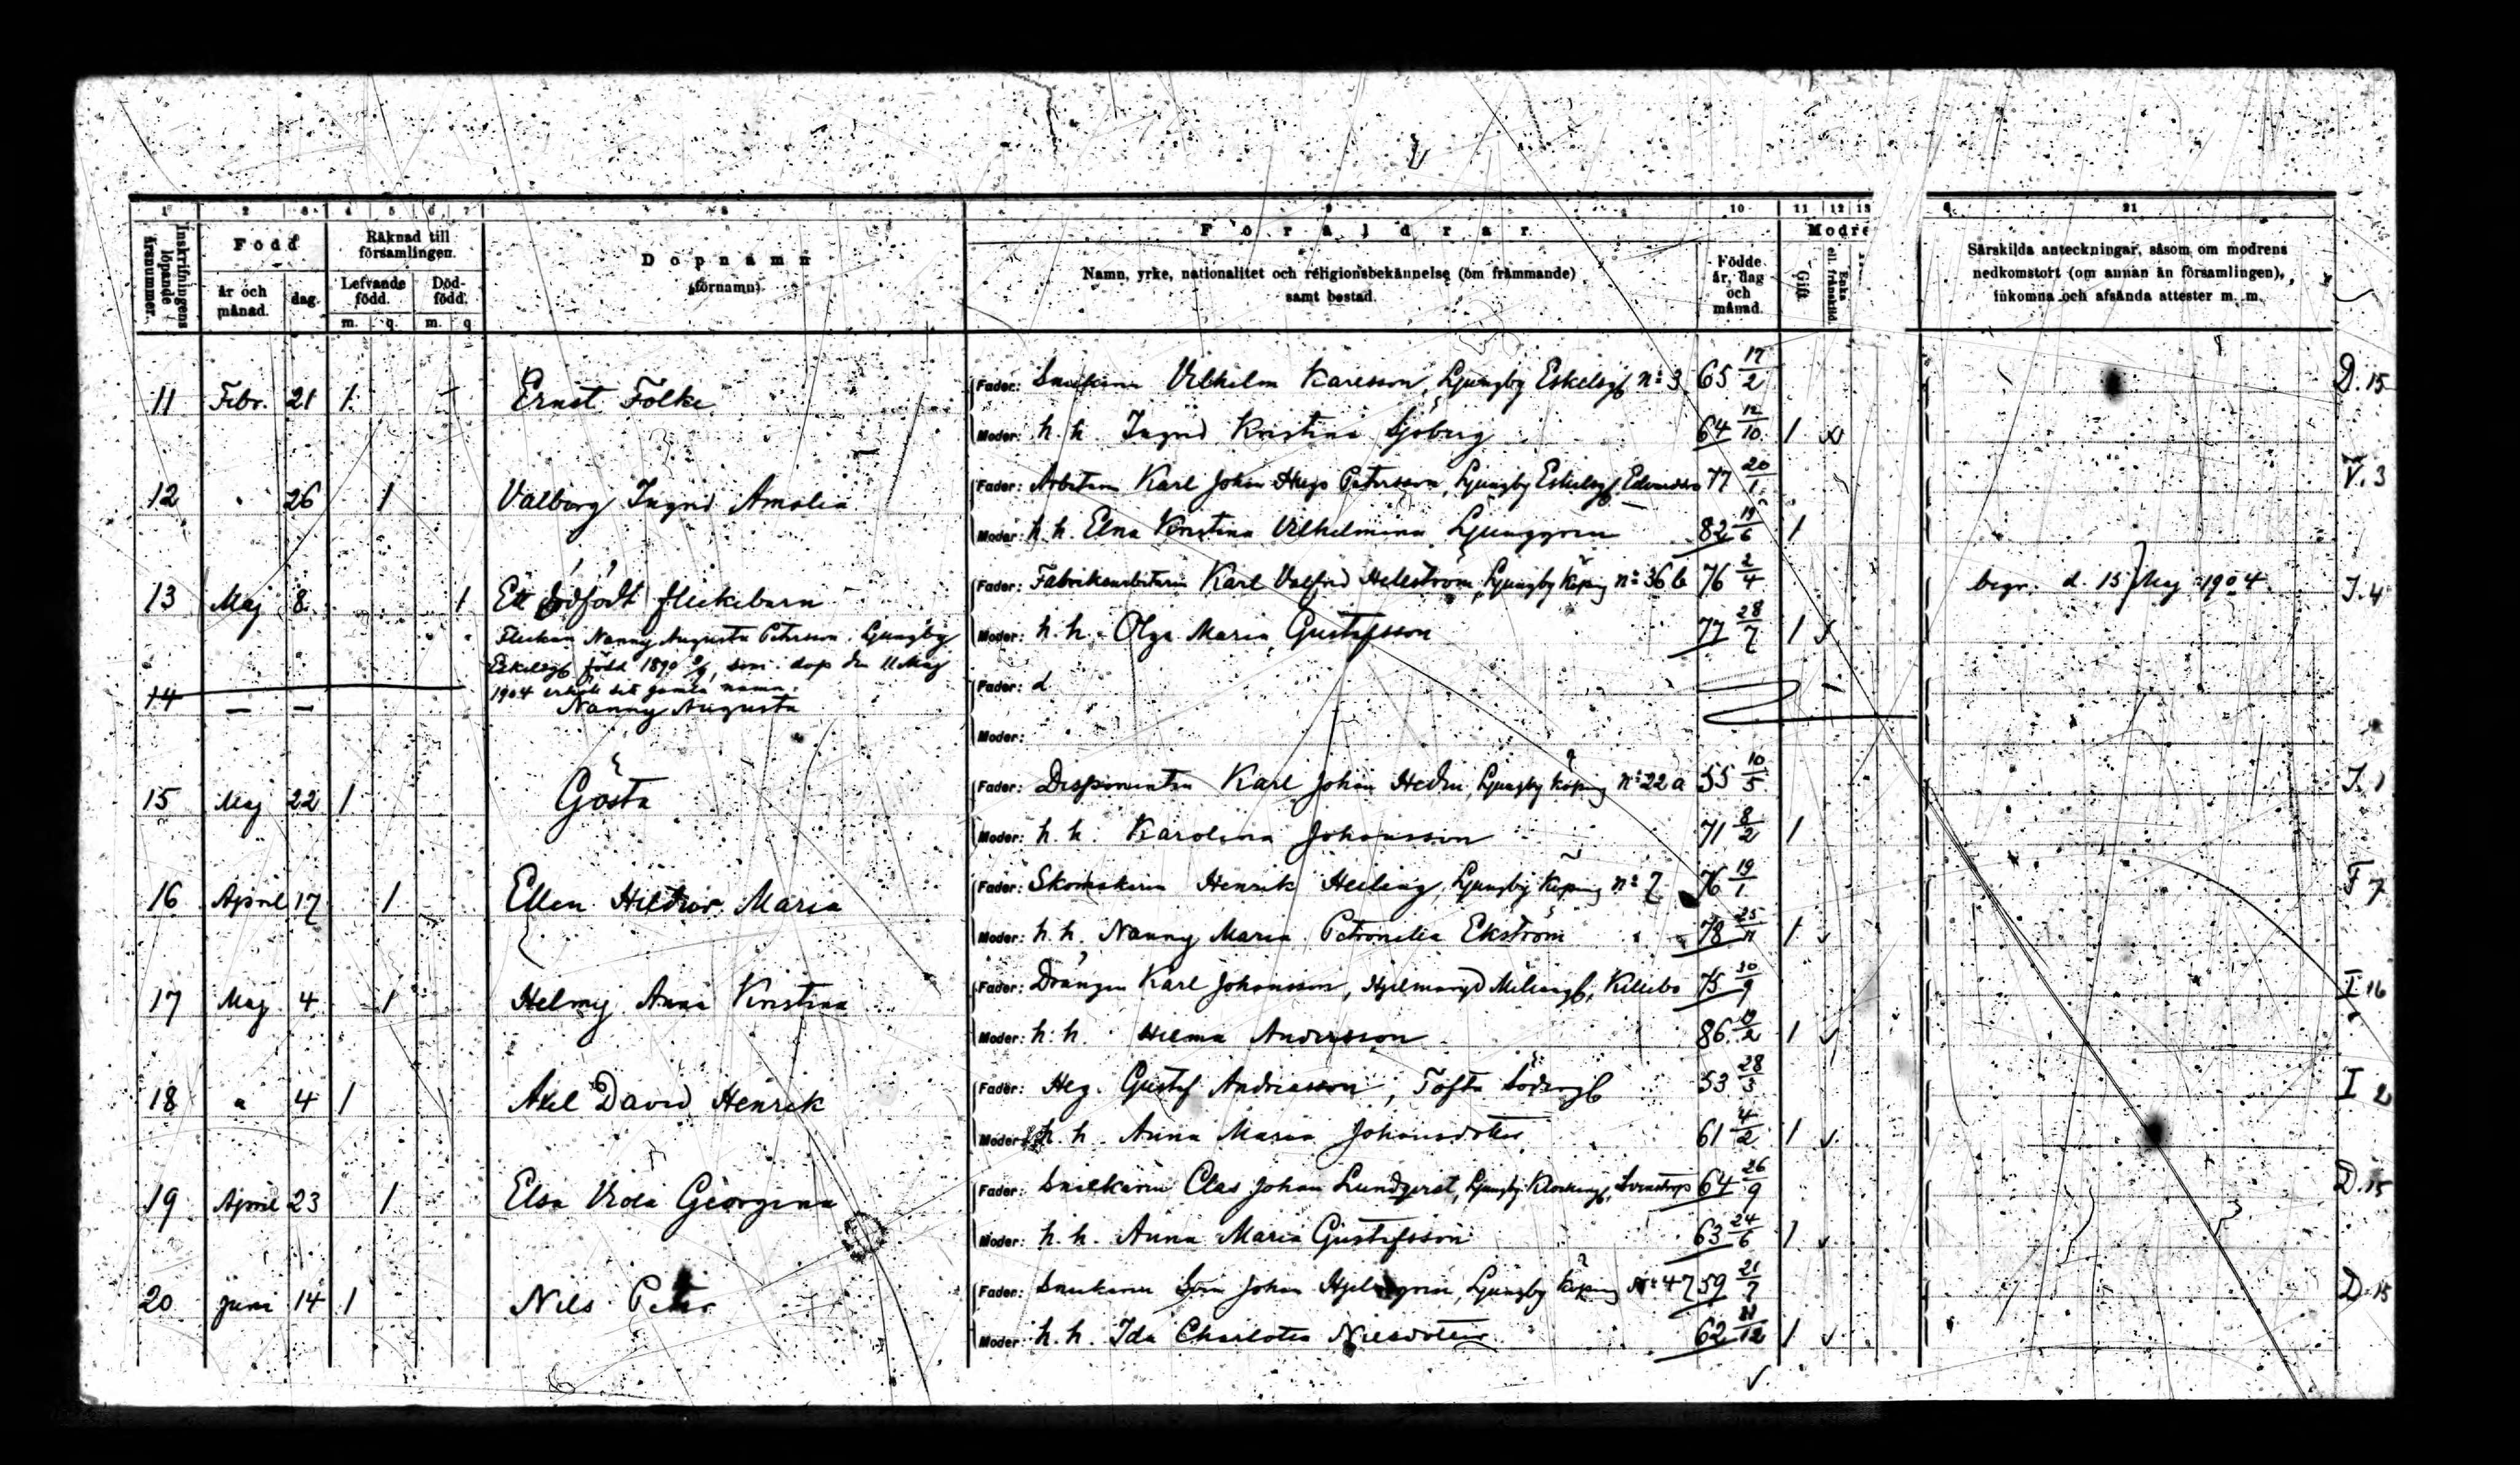 1 2 3 4 5 6 7 8 9 10 11 12 13 21
Inskrifningens löpande årsnummer.
Född
år och månad.
dag.
Räknad till församlingen.
Lefvande född.
Död-född.
m. q. m. q
Dopnamn
(förnamn).
Föräldrar.
Namn, yrke, nationalitet och religionsbekännelse (om främmande)
samt bostad.
Födde år, dag och månad.
Modre
Gift.
Enka ell. frånskild.
Särskilda anteckningar, såsom om modrens
nedkomstort (om annan än församlingen),
inkomna och afsända attester m. m.
11 Febr. 21 1 Ernst Folke
Fader: Snickaren Vilhelm Karlsson, Ljungby Eskelsg. n:o 3 65 17/2 D. 15
Moder: h. h. Ingrid Kristina Sjöberg 64 12/10 1
12 " 26 1 Valborg Ingrid Amalia
Fader: Arbetaren Karl Johan Hugo Petersson, Ljungby Eskelsg. 77 20/1 V. 3
Moder: h. h. Elna Kristina Vilhelmina Ljunggren 82 19/6 1
13 Maj 8 1 Ett dödfödt flickebarn
Fader: Fabriksarbetaren Karl Valfrid Hellström, Ljungby Köping n:o 36 b 76 2/4 begr. d. 15 Maj 1904. J. 4
Moder: h. h. Olga Maria Gustafsson 77 28/7 1
14 — —
Flickan Nanny Augusta Petersson, Ljungby
Eskelsg. född 1890 , som i dop den 11 Maj
1904 erhöll sitt gamla namn:
Nanny Augusta
Fader: d
Moder:
15 Maj 22 1 Gösta
Fader: Disponenten Karl Johan Hedin, Ljungby Köping n:o 22 a 55 10/5 J. 1
Moder: h. h. Karolina Johansson 71 8/2 1
16 April 17 1 Ellen Hildur Maria
Fader: Skomakaren Henrik Heiling, Ljungby Köping n:o 7 76 19/1 F 7
Moder: h. h. Nanny Maria Petronilia Ekström 78 25/11 1
17 Maj 4 1 Helmy Anna Kristina
Fader: Drängen Karl Johansson, Hjelmaryd Mellang., Killebo 75 30/9 I 16
Moder: h. h. Hilma Andersson 86 19/2 1
18 " 4 1 Axel David Henrik
Fader: Heg. Gustaf Andreasson, Tofta Söderg. 53 28/3 I 2
Moder: h. h. Anna Maria Johansdotter 61 4/2 1
19 April 23 1 Elsa Viola Georgina
Fader: Snickaren Clas Johan Lundqvist, Ljungby Klockareg., 64 26/9 D. 15
Moder: h. h. Anna Maria Gustafsson 63 24/6 1
20 Juni 14 1 Nils Peter
Fader: Snickaren Sven Johan Ljungby Köping n:o 47 59 21/7 D. 15
Moder: h. h. Ida Charlotta Nilsdotter 62 1